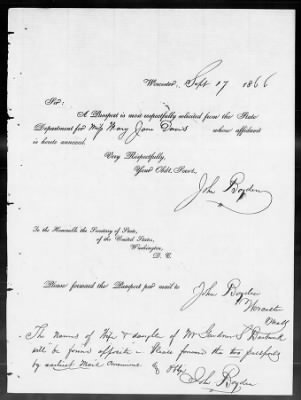 Worcester, Sept 17 1866
Sir:
A Passport is most respectfully solicited from the State
Department for Miss Mary Jane Davis whose affidavit
is hereto annexed.
Very Respectfully,
Your Obdt. Servt.
John Boyden
To the Honorable the Secretary of State,
of the United States,
Washington,
D. C.
Please forward the Passport per mail to John Boyden
Worcester
Mass
The Names of Wife & daughter of Mr S Burbank
will be found opposite - Please forward the two passports
by earliest Mail &
John Boyden